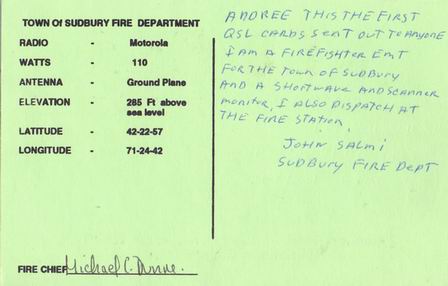 TOWN OF SUDBURY FIRE DEPARTMENT
RADIO - Motorola
WATTS - 110
ANTENNA - Ground Plane
ELEVATION - 285 Ft above
sea level
LATITUDE - 42-22-57
LONGITUDE - 71-24-42
FIRE CHIEF Michael C. Dunne.
ANDREE THIS THE FIRST
QSL CARDS SENT OUT TO ANYONE
I AM A FIREFIGHTER EMT
FOR THE TOWN OF SUDBURY
AND A SHORTWAVE AND SCANNER
MONITOR, I ALSO DISPATCH AT
THE FIRE STATION.
JOHN SALMI
SUDBURY FIRE DEPT